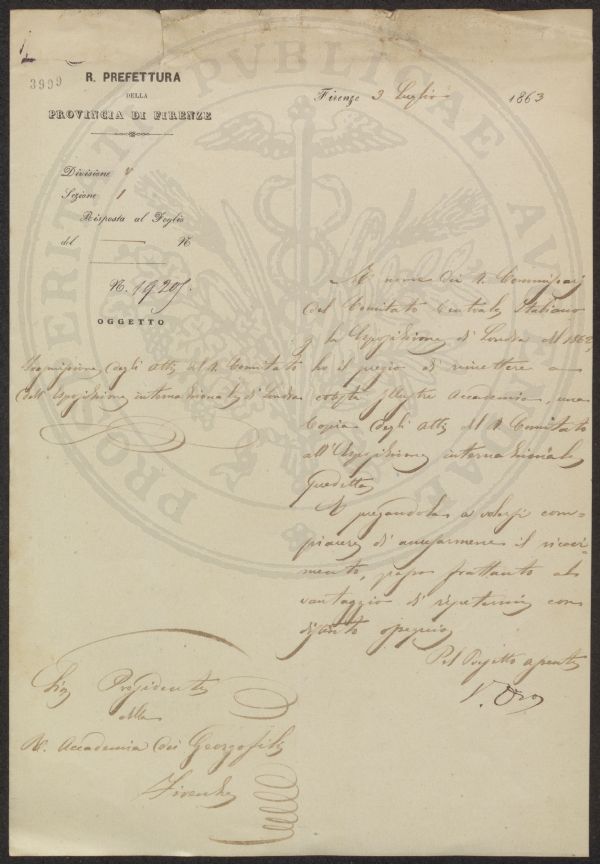 3999
R. PREFETTURA
DELLA
PROVINCIA DI FIRENZE
Firenze 3 Luglio 1863
Divisione
Sezione 1
Risposta al Foglio
del N.
N. 19205
OGGETTO
Trasmissione degli Atti del R. Comitato
dell'Esposizione internazionale di Londra
A nome dei R. Commissarj
del Comitato Centrale Italiano
p la Esposizione di Londra del 1862,
ho il pregio di rimettere a
cotesta Illustre Accademia, una
Copia degli Atti del R. Comitato
all'Esposizione internazionale
suddetta.
E pregandola a volersi com=
piacere di accusarmene il ricevi=
mento, passo frattanto al
vantaggio di ripetermi con
distinto ossequio
Pel Prefetto assente
Sig. Presidente
della
R. Accademia dei Georgofili
Firenze
PROSPERITATI PUBLICAE AUGENDAE